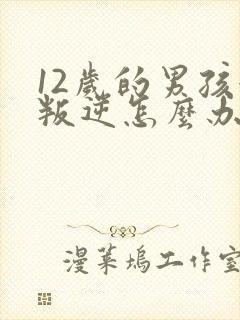 12歲的男孩
叛逆怎麼办
漫菓塢工作室